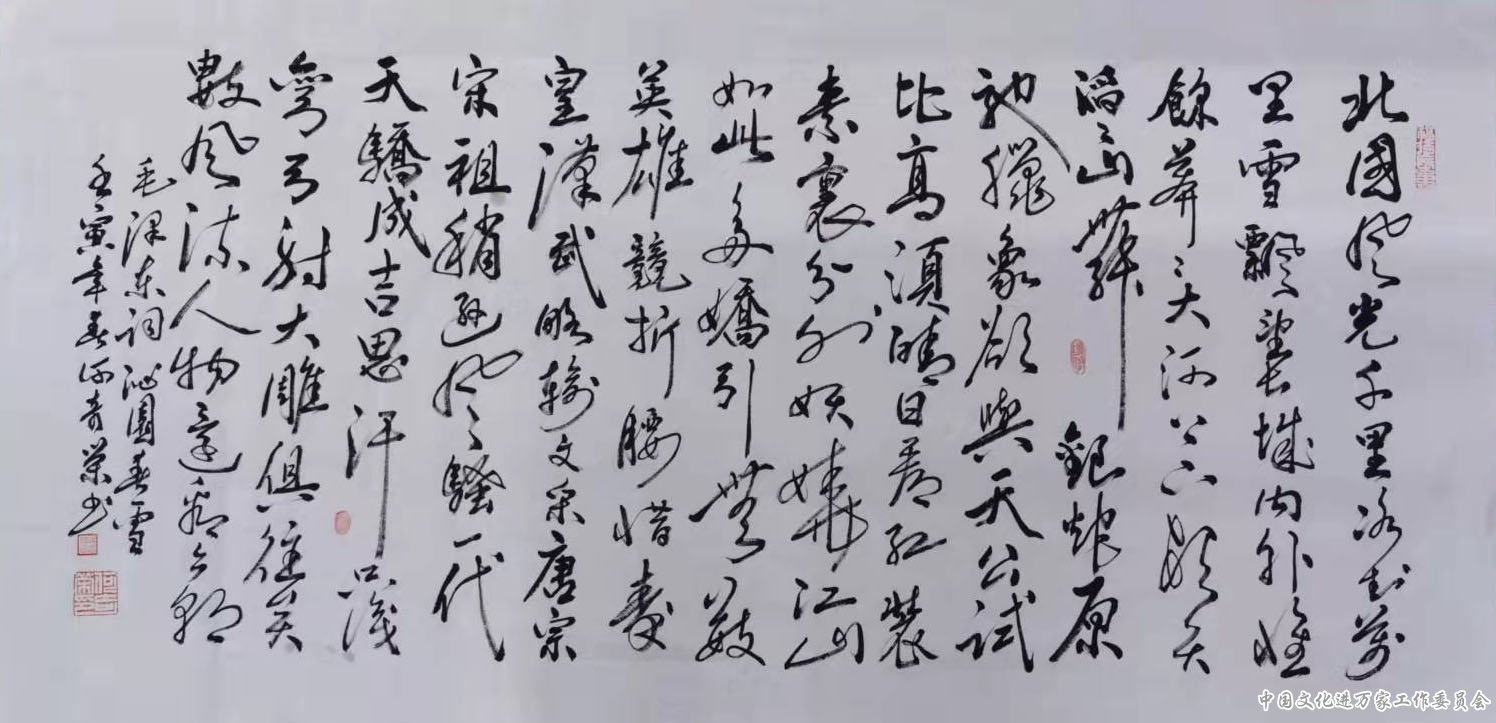 北國風光千里冰封萬
里雪飄望長城内外惟
餘莽〻大河上下頓失
滔〻山舞銀蛇原
馳蠟象欲與天公試
比高須晴日看紅裝
素裹分外妖嬈江山
如此多嬌引無數
英雄競折腰惜秦
皇漢武略輸文采唐宗
宋祖稍遜風騷一代
天驕成吉思汗只識
彎弓射大雕俱往矣
數風流人物還看今朝
毛澤東詞沁園春雪
壬寅年春何奇榮书
中国文化进万家工作委员会